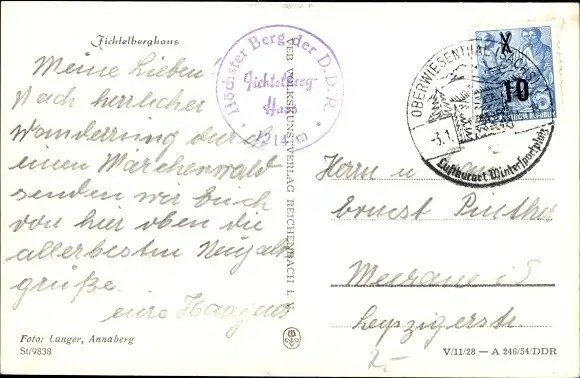 Fichtelberghaus
Meine Lieben
Nach herrlicher
Wanderung durch
einen Märchenwald
senden wir Euch
von hier oben die
allerbesten Neujahrs
grüße.
eure
Foto: Langer, Annaberg
St/9838
VEB VOLKSKUNSTVERLAG REICHENBACH I. V.
Höchster Berg der D.D.R.
Fichtelberg-
Haus
1214 m
OBERWIESENTHAL (SACHS)
-3.1.
Luftkurort Wintersportplatz
X
10
Herrn u
Ernest
Meerane i S
Leipzigerstr.
V/11/28 — A 246/54/DDR